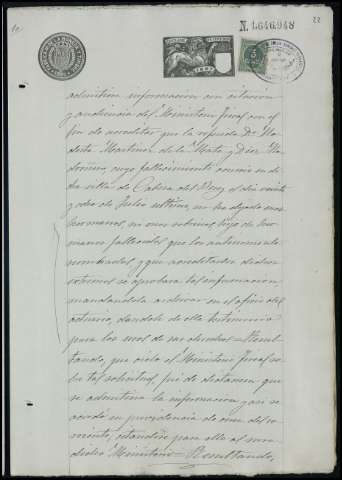 N. 1.646.948
22
admitiera informacion con citacion
y audiencia del Ministerio fiscal con el
fin de acreditar que la repetida Dª Ma
Martinez de la Mata y Diez
cuyo fallecimiento ocurrió en di
cha villa de Cabra del Rey el dia veinte
y ocho de Julio ultimo, no ha dejado mas
hermanos, ni otros sobrinos, hijos de her
manos fallecidos que los anteriormente
nombrados; y que acreditados dichos
extremos se aprobara tal informacion
mandandola archivar en el oficio del
actuario, dandole de ella testimonio
para los usos de su derecho = Resul
tando, que oido el Ministerio fiscal so
bre tal solicitud, fué de dictamen que
se admitiera la informacion y asi se
acordó en providencia de once del co
rriente, citandose para ello al men
dicho Ministerio = Resultando,